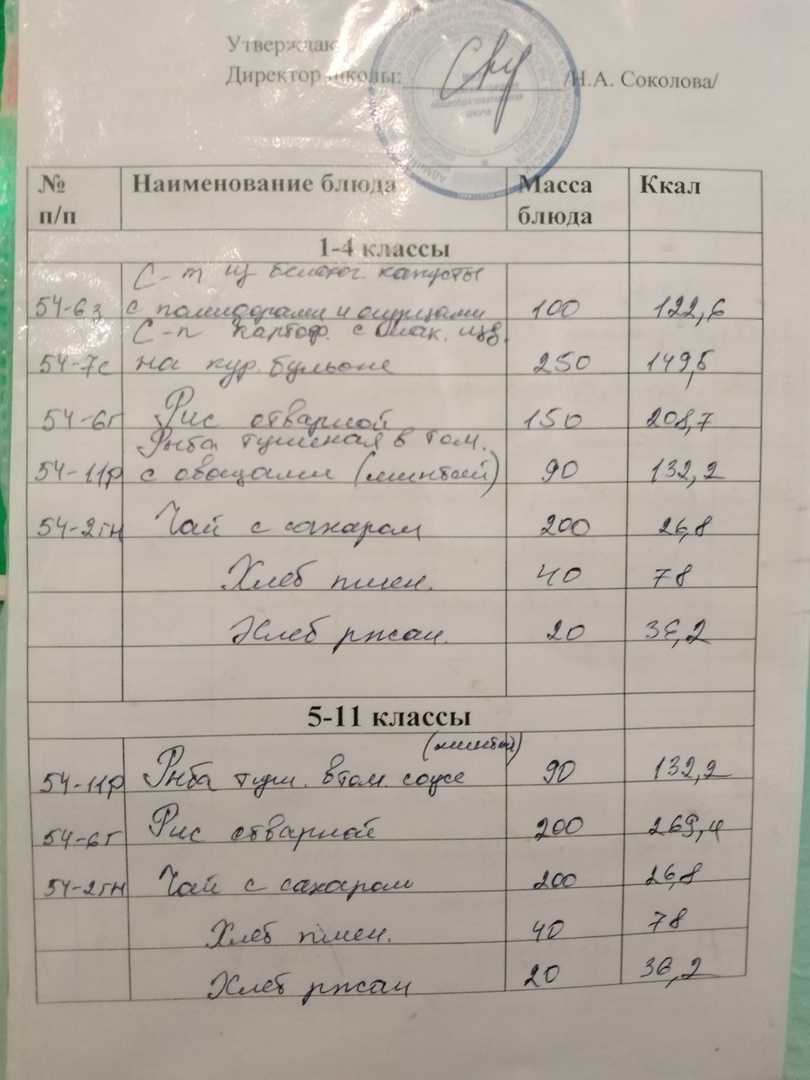 Утверждаю
Директор школы: /Н.А. Соколова/
общеобразовательная
школа
№ п/п Наименование блюда Масса блюда Ккал
1-4 классы
С-т из белокоч. капусты
54-6з с помидорами и огурцами 100 122,6
С-п картоф. с мак. изд.
54-7с на кур. бульоне 250 149,5
54-6г Рис отварной 150 208,7
Рыба тушеная в том.
54-11р с овощами (минтай) 90 132,2
54-2гн Чай с сахаром 200 26,8
Хлеб пшен. 40 78
Хлеб ржан. 20 36,2
5-11 классы
(минтай)
54-11р Рыба туш. в том. соусе 90 132,2
54-6г Рис отварной 200 269,4
54-2гн Чай с сахаром 200 26,8
Хлеб пшен. 40 78
Хлеб ржан 20 36,2